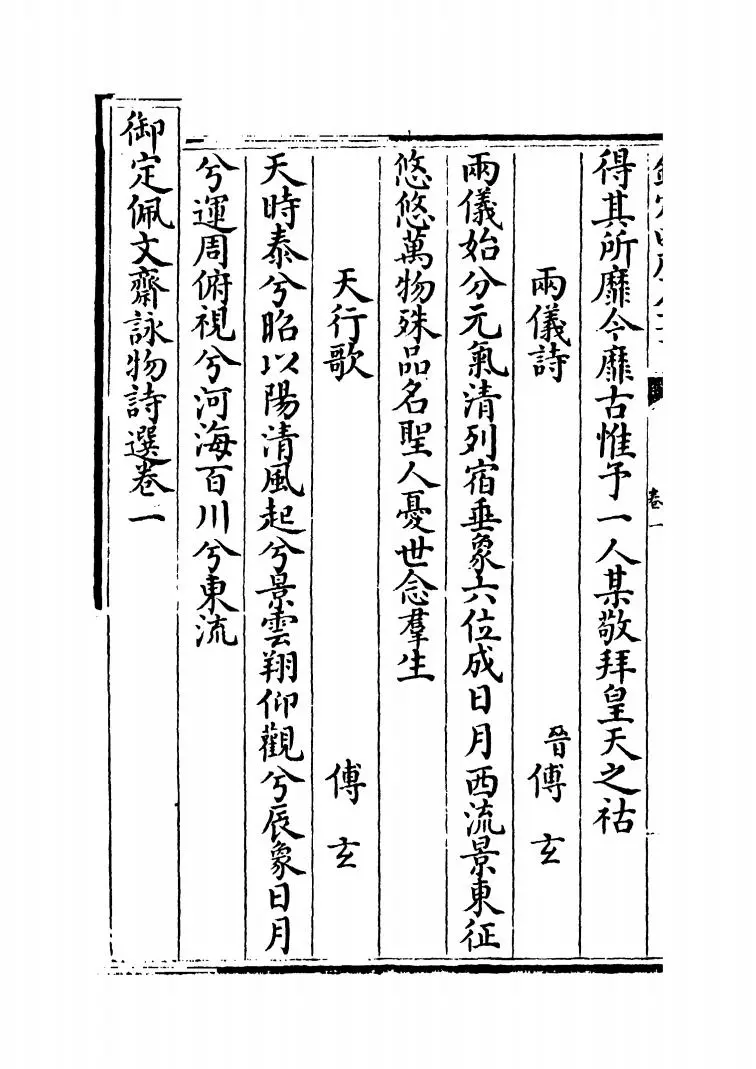 卷一
得其所靡今靡古惟予一人某敬拜皇天之祜
兩儀詩 晉傅玄
兩儀始分元氣清列宿垂象六位成日月西流景東征
悠悠萬物殊品名聖人憂世念羣生
天行歌 傅玄
天時泰兮昭以陽清風起兮景雲翔仰觀兮辰象日月
兮運周俯視兮河海百川兮東流
御定佩文齋詠物詩選卷一